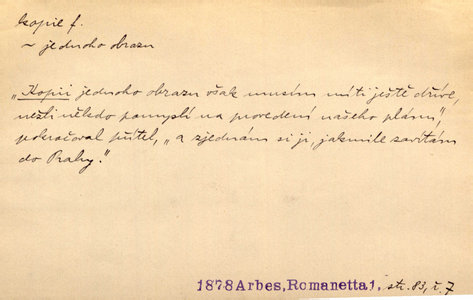 kopie f.
~ jednoho obrazu
„Kopii jednoho obrazu však musím míti ještě dříve,
nežli někdo pomyslí na provedení našeho plánu,“
pokračoval přítel, „a zjednám si ji, jakmile zavítám
do Prahy.“
1878 Arbes, Romanetta 1, str. 83, ř. 7